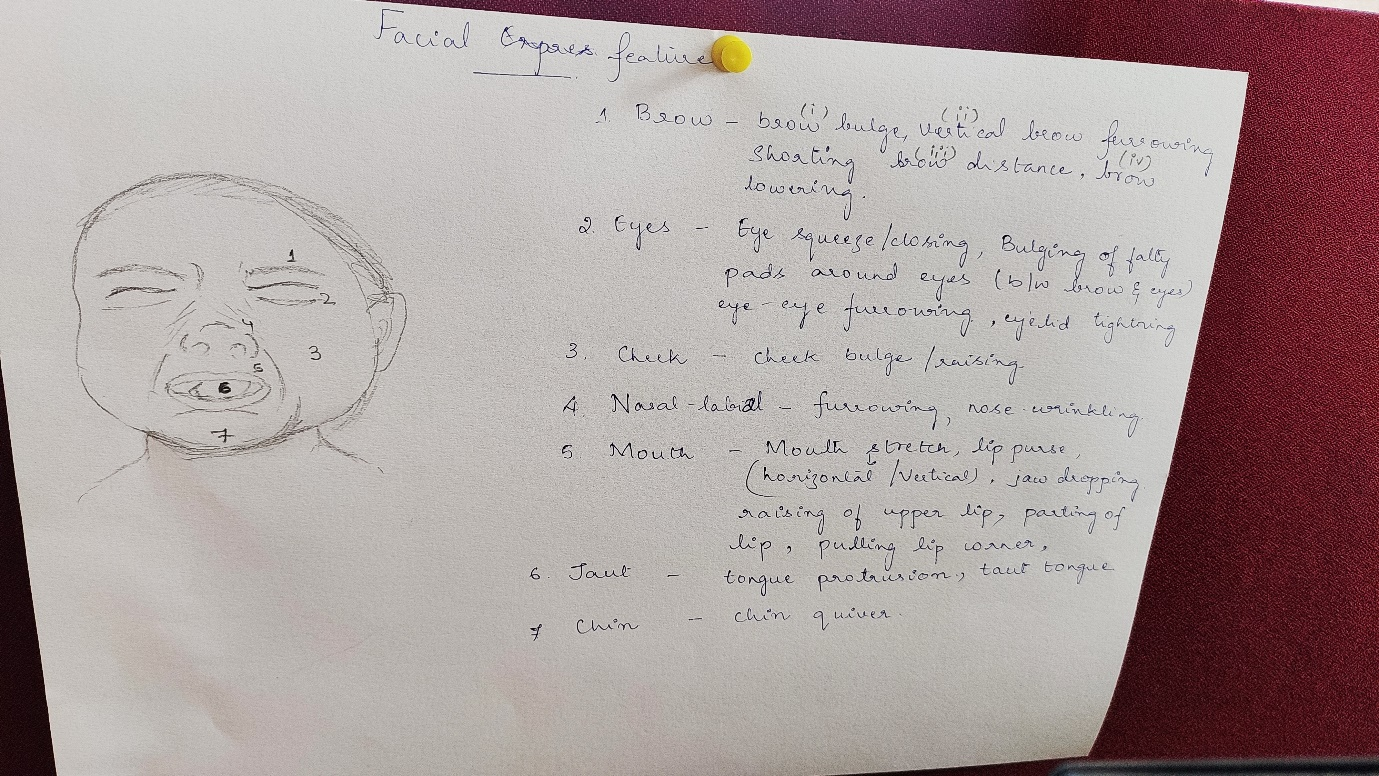 Facial Expres. feature
1. Brow - brow bulge, vertical brow furrowing
(i) (ii)
shorting brow distance, brow
(iii) (iv)
lowering.
2. Eyes - Eye squeeze/closing, Bulging of fatty
pads around eyes (b/w brow & eyes)
eye-eye furrowing, eyelid tightning
3. Cheek - cheek bulge/raising
4. Nasal-labial - furrowing, nose-wrinkling.
5. Mouth - Mouth stretch, lip purse,
(horizontal/Vertical), jaw dropping.
raising of upper lip, parting of
lip, pulling lip corner,
6. Taut - tongue protrusion, taut tongue
7 Chin - chin quiver.
1
2
3
4
5
6
7